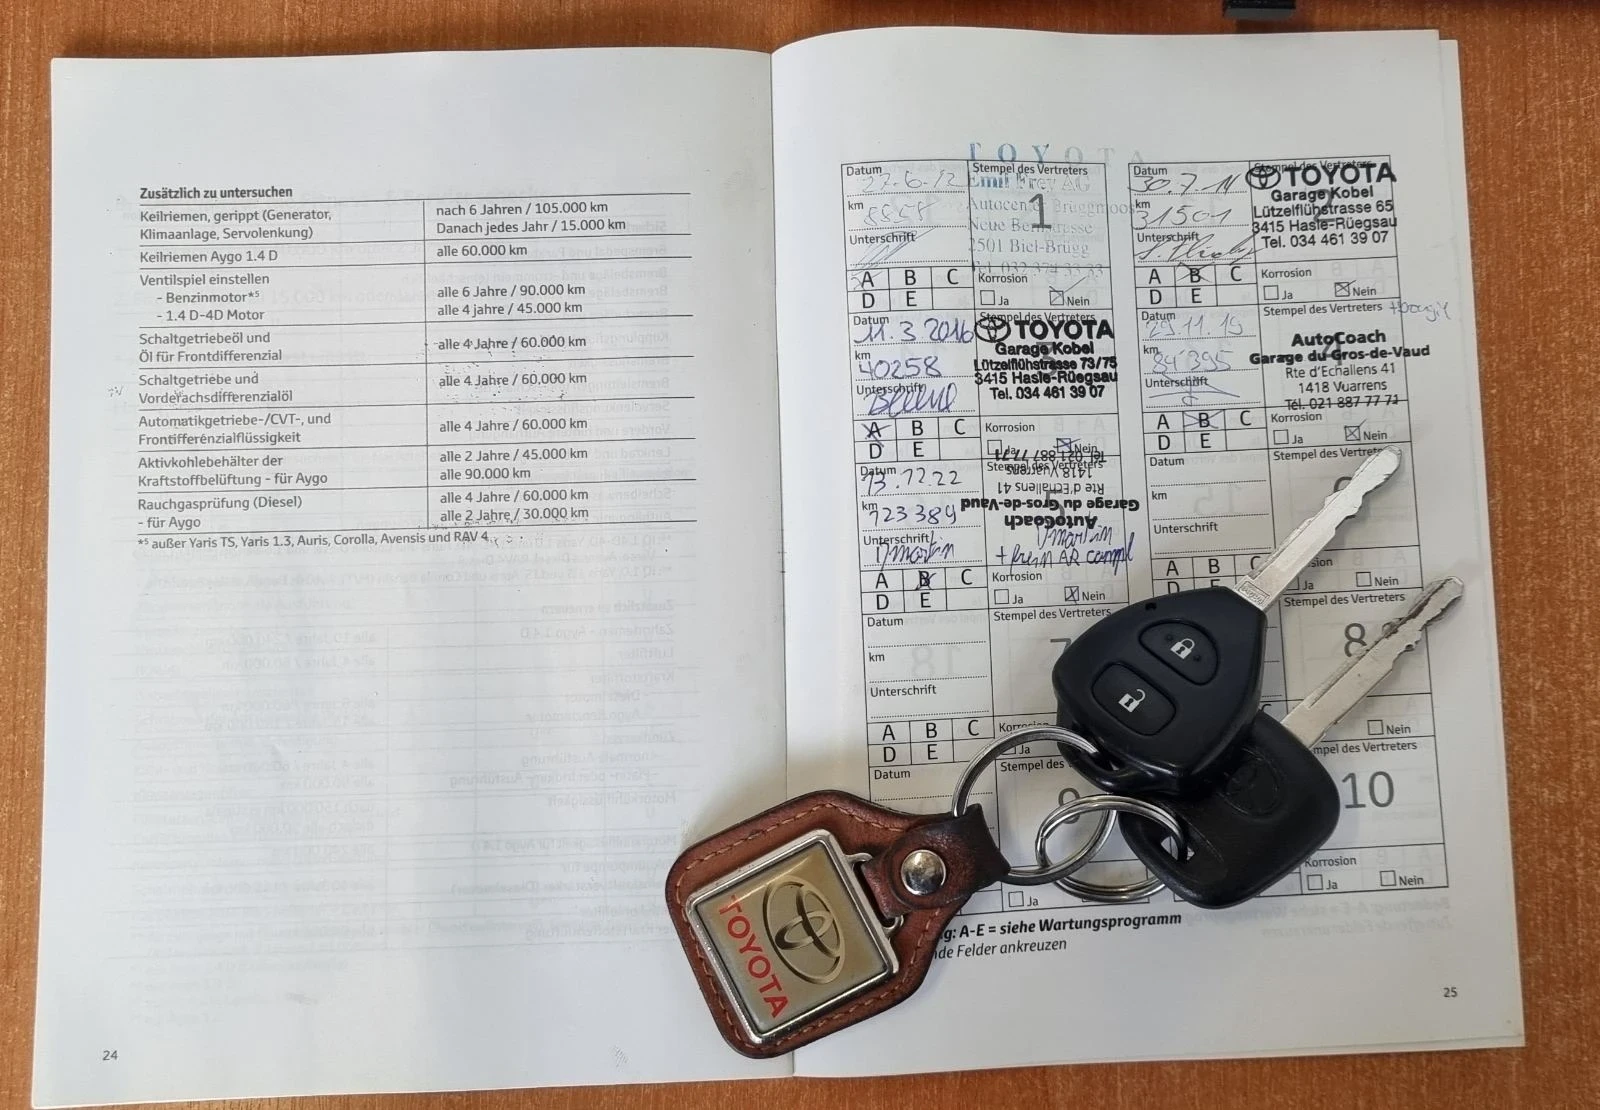 Zusätzlich zu untersuchen
Keilriemen, gerippt (Generator, Klimaanlage, Servolenkung)
nach 6 Jahren / 105.000 km
Danach jedes Jahr / 15.000 km
Keilriemen Aygo 1.4 D
alle 60.000 km
Ventilspiel einstellen
- Benzinmotor*⁵
alle 6 Jahre / 90.000 km
- 1.4 D-4D Motor
alle 4 jahre / 45.000 km
Schaltgetriebeöl und
Öl für Frontdifferenzial
alle 4 Jahre / 60.000 km
Schaltgetriebe und
Vorderachsdifferenzialöl
alle 4 Jahre / 60.000 km
Automatikgetriebe-/CVT-, und
Frontifferenzialflüssigkeit
alle 4 Jahre / 60.000 km
Aktivkohlebehälter der
Kraftstoffbelüftung - für Aygo
alle 2 Jahre / 45.000 km
alle 90.000 km
Rauchgasprüfung (Diesel)
- für Aygo
alle 4 Jahre / 60.000 km
alle 2 Jahre / 30.000 km
*⁵ außer Yaris TS, Yaris 1.3, Auris, Corolla, Avensis und RAV 4
24
TOYOTA
Datum
27.6.12
km
8858
Unterschrift
Stempel des Vertreters
1
Emil Frey AG
Neue Bernstrasse
2501 Biel-Brügg
A B C
D E
Korrosion
Ja Nein
Datum
30.7.14
km
31501
Unterschrift
Stempel des Vertreters
2
TOYOTA
Garage Kobel
Lützelflühstrasse 65
3415 Hasle-Rüegsau
Tel. 034 461 39 07
A B C
D E
Korrosion
Ja Nein
Datum
11.3.2016
km
40258
Unterschrift
Stempel des Vertreters
TOYOTA
Garage Kobel
Lützelflühstrasse 73/75
3415 Hasle-Rüegsau
Tel. 034 461 39 07
A B C
D E
Korrosion
Ja Nein
Datum
29.11.19
km
84395
Unterschrift
Stempel des Vertreters
AutoCoach
Garage du Gros-de-Vaud
Rte d'Echallens 41
1418 Vuarrens
Tél. 021 887 77 71
A B C
D E
Korrosion
Ja Nein
Datum
13.12.22
km
123389
Unterschrift
Martin
Stempel des Vertreters
AutoCoach
Garage du Gros-de-Vaud
Rte d'Echallens 41
1418 Vuarrens
Tél. 021 887 77 71
Martin
+ frein AR compl
A B C
D E
Korrosion
Ja Nein
Datum
km
Unterschrift
Stempel des Vertreters
A B C
Ja Nein
Datum
km
Unterschrift
Stempel des Vertreters
7
A B C
D E
Ja
Stempel des Vertreters
8
Nein
Datum
Stempel des
9
Ja
des Vertreters
10
Korrosion
Ja Nein
A-E = siehe Wartungsprogramm
Felder ankreuzen
25
TOYOTA